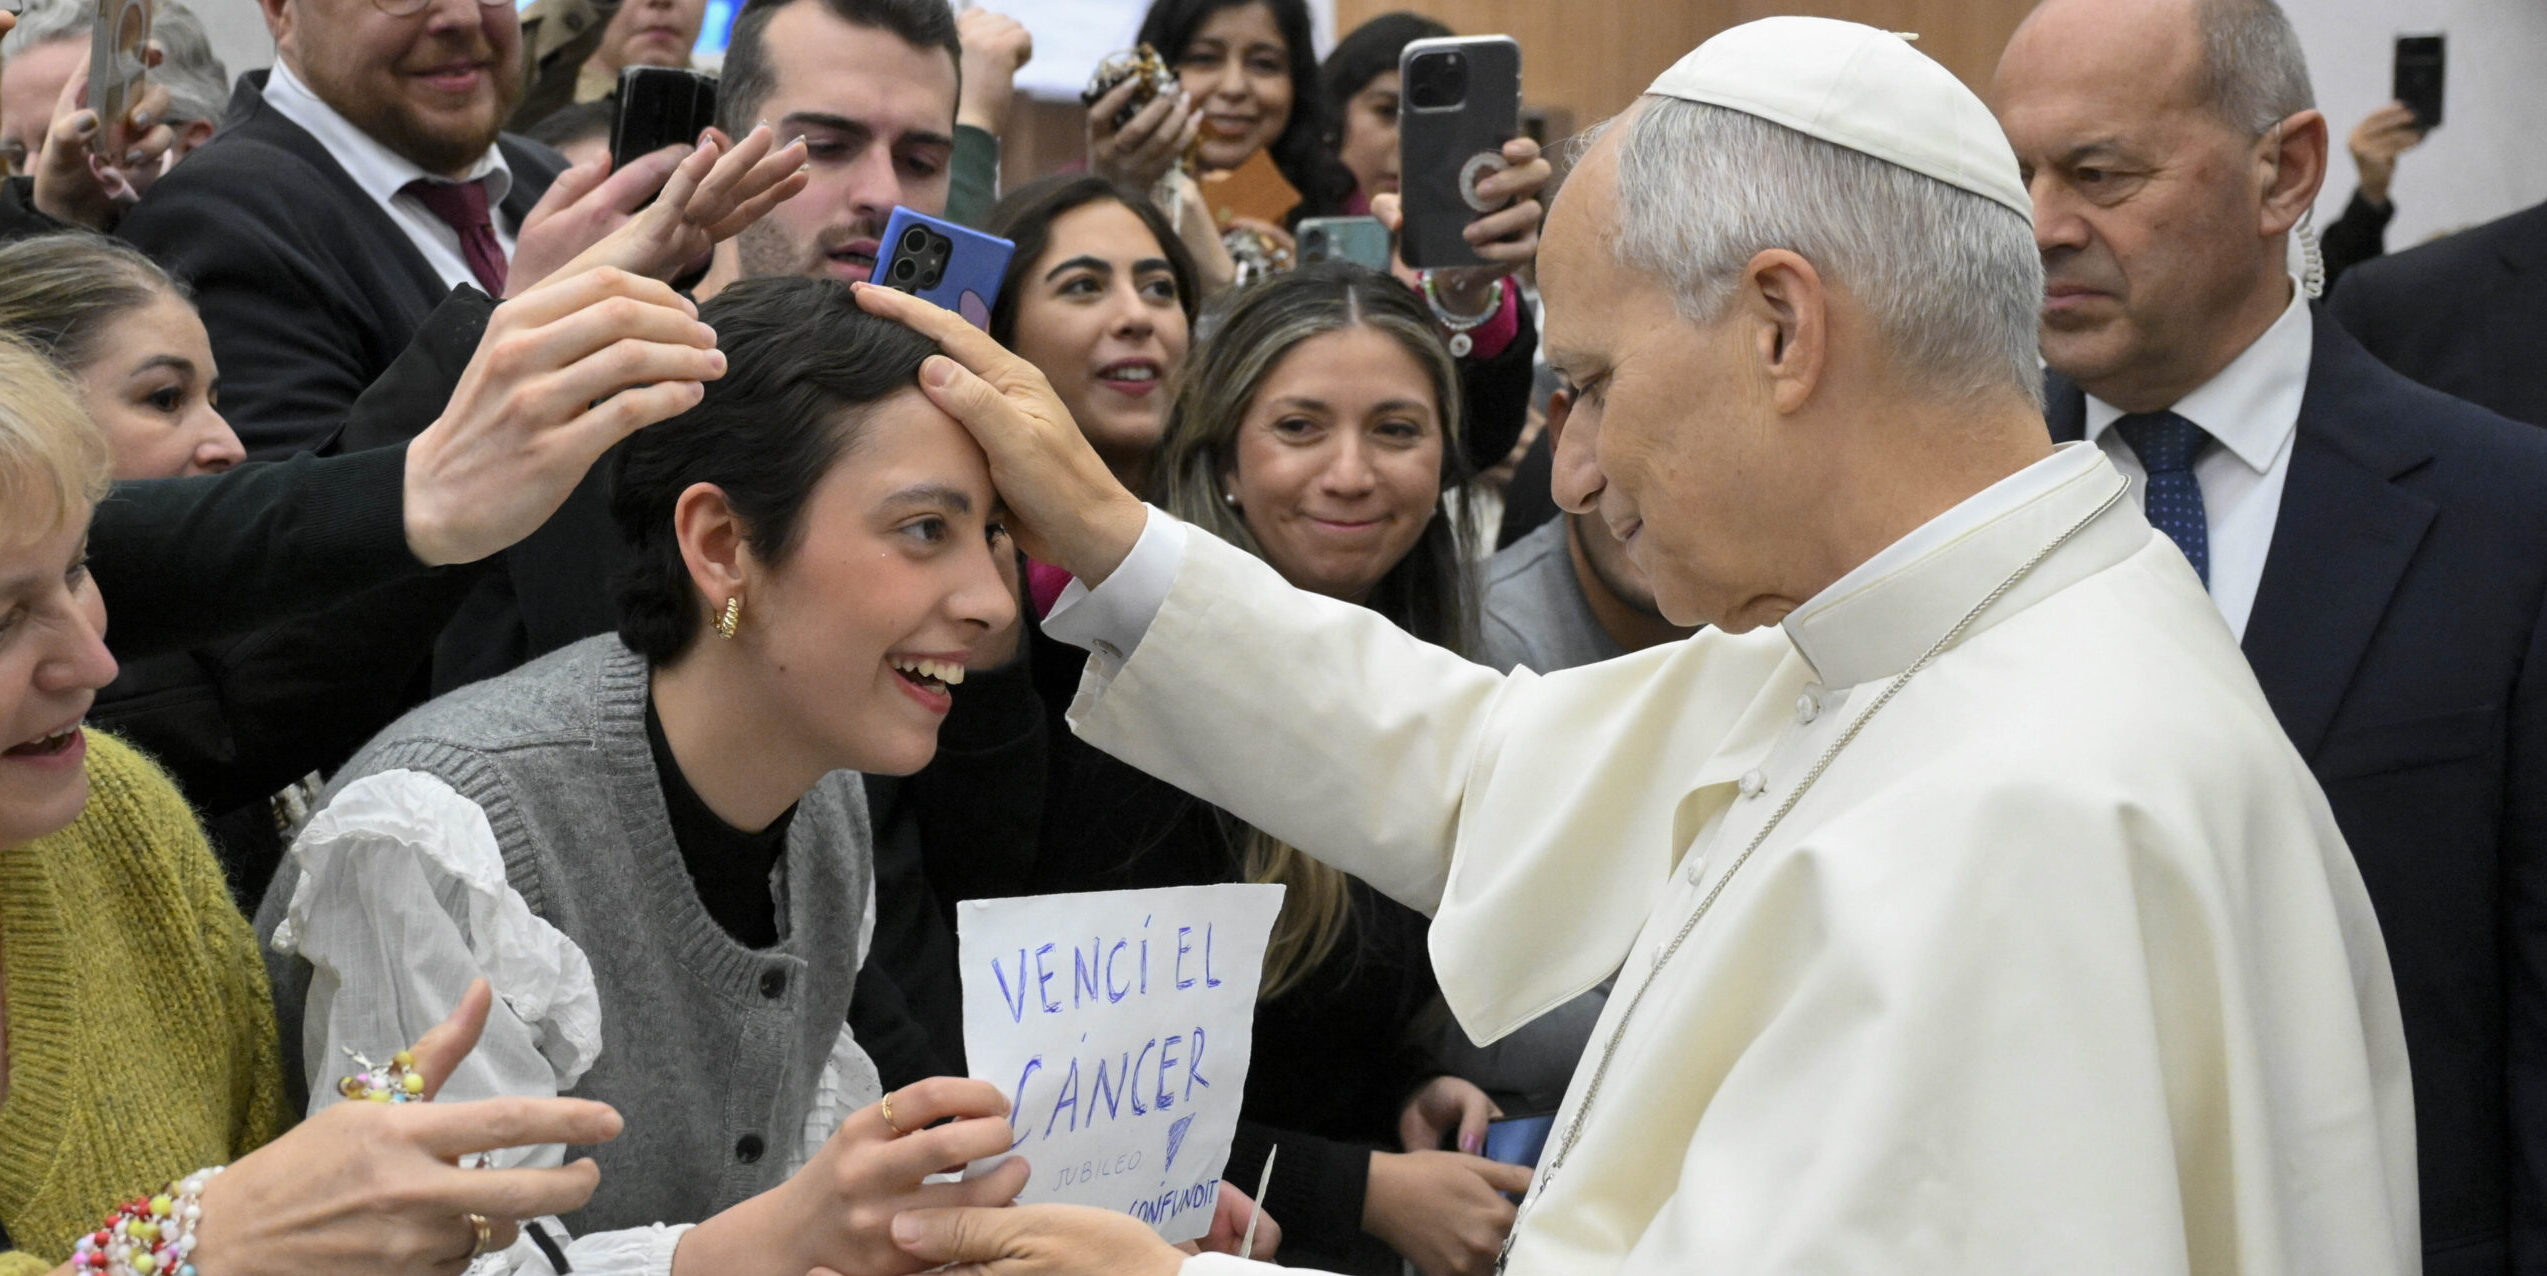 VENCÍ EL
CÁNCER
JUBILEO
CONFUNDIT